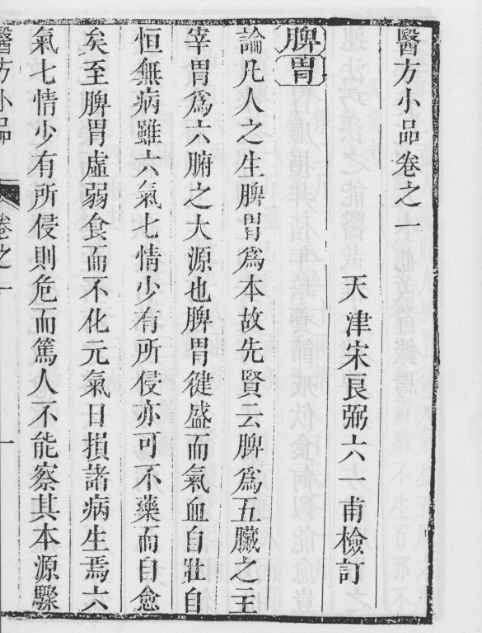 醫方小品卷之一
天津宋良弼六一甫檢訂
脾胃
論凡人之生脾胃爲本故先賢云脾爲五臟之主
宰胃爲六腑之大源也脾胃健盛而氣血自壯自
恒無病雖六氣七情少有所侵亦可不藥而自愈
矣至脾胃虛弱食而不化元氣日損諸病生焉六
氣七情少有所侵則危而篤人不能察其本源驟
醫方小品
卷之一
一